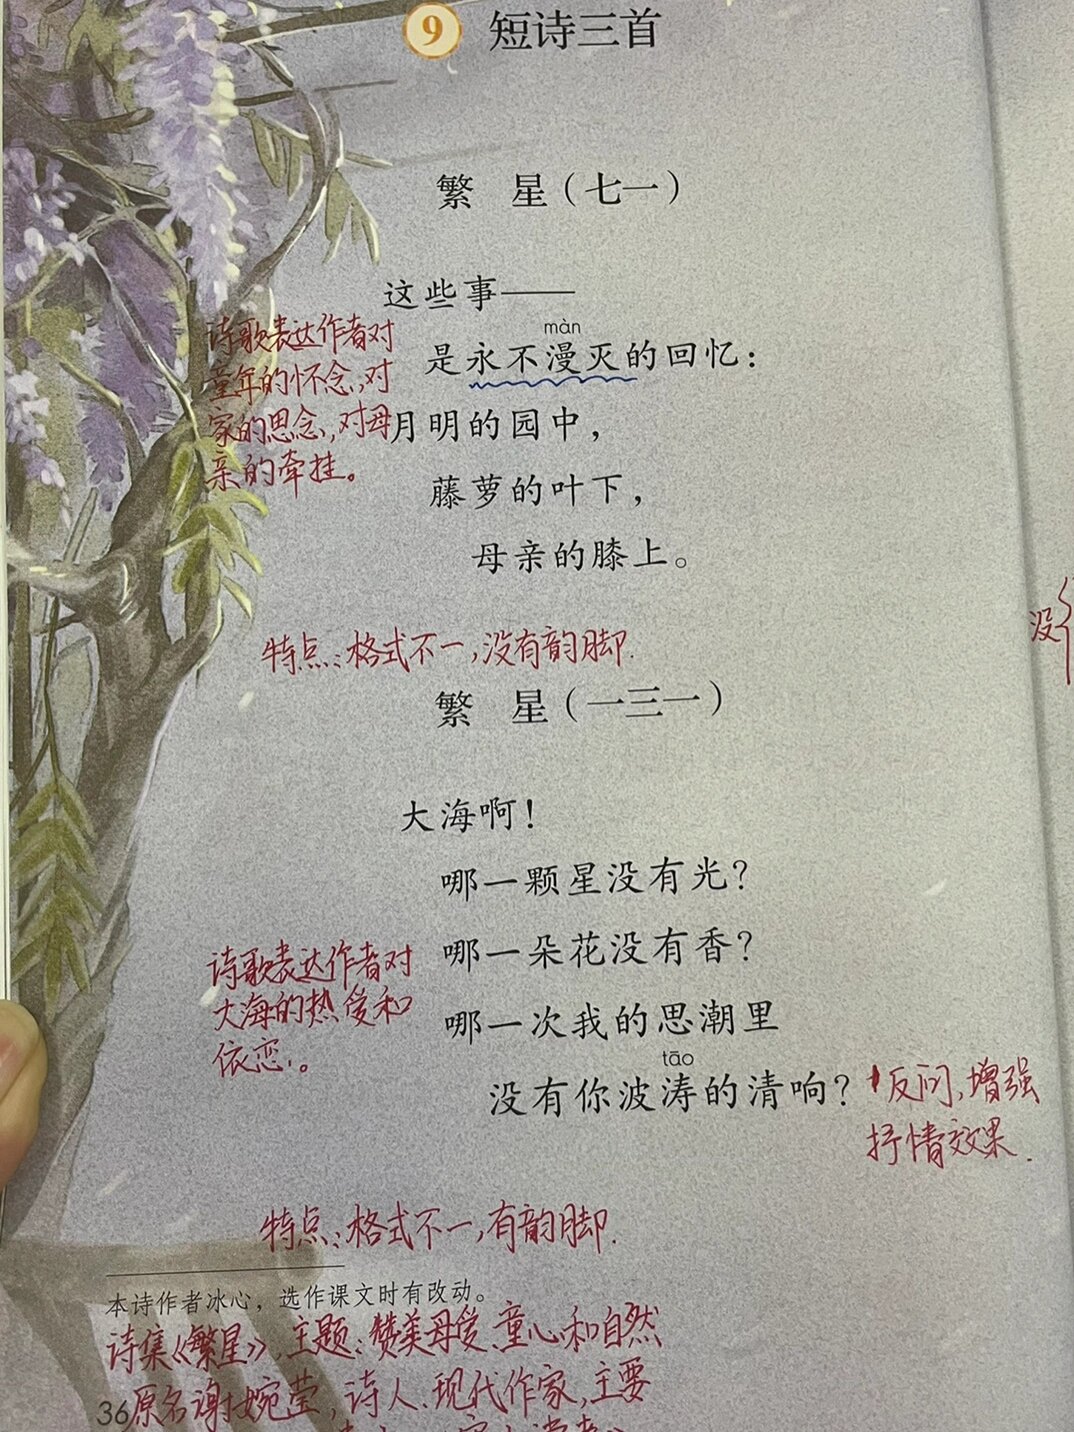 9 短诗三首
繁 星（七一）
这些事——
màn
是永不漫灭的回忆：
月明的园中，
藤萝的叶下，
母亲的膝上。
诗歌表达作者对
童年的怀念，对
家的思念，对母
亲的牵挂。
特点：格式不一，没有韵脚.
没
繁 星（一三一）
大海啊！
哪一颗星没有光？
哪一朵花没有香？
哪一次我的思潮里
tāo
没有你波涛的清响？
诗歌表达作者对
大海的热爱和
依恋。
反问，增强
抒情效果.
特点：格式不一，有韵脚.
本诗作者冰心，选作课文时有改动。
诗集《繁星》，主题：赞美母爱、童心和自然
原名谢婉莹，诗人、现代作家，主要
36